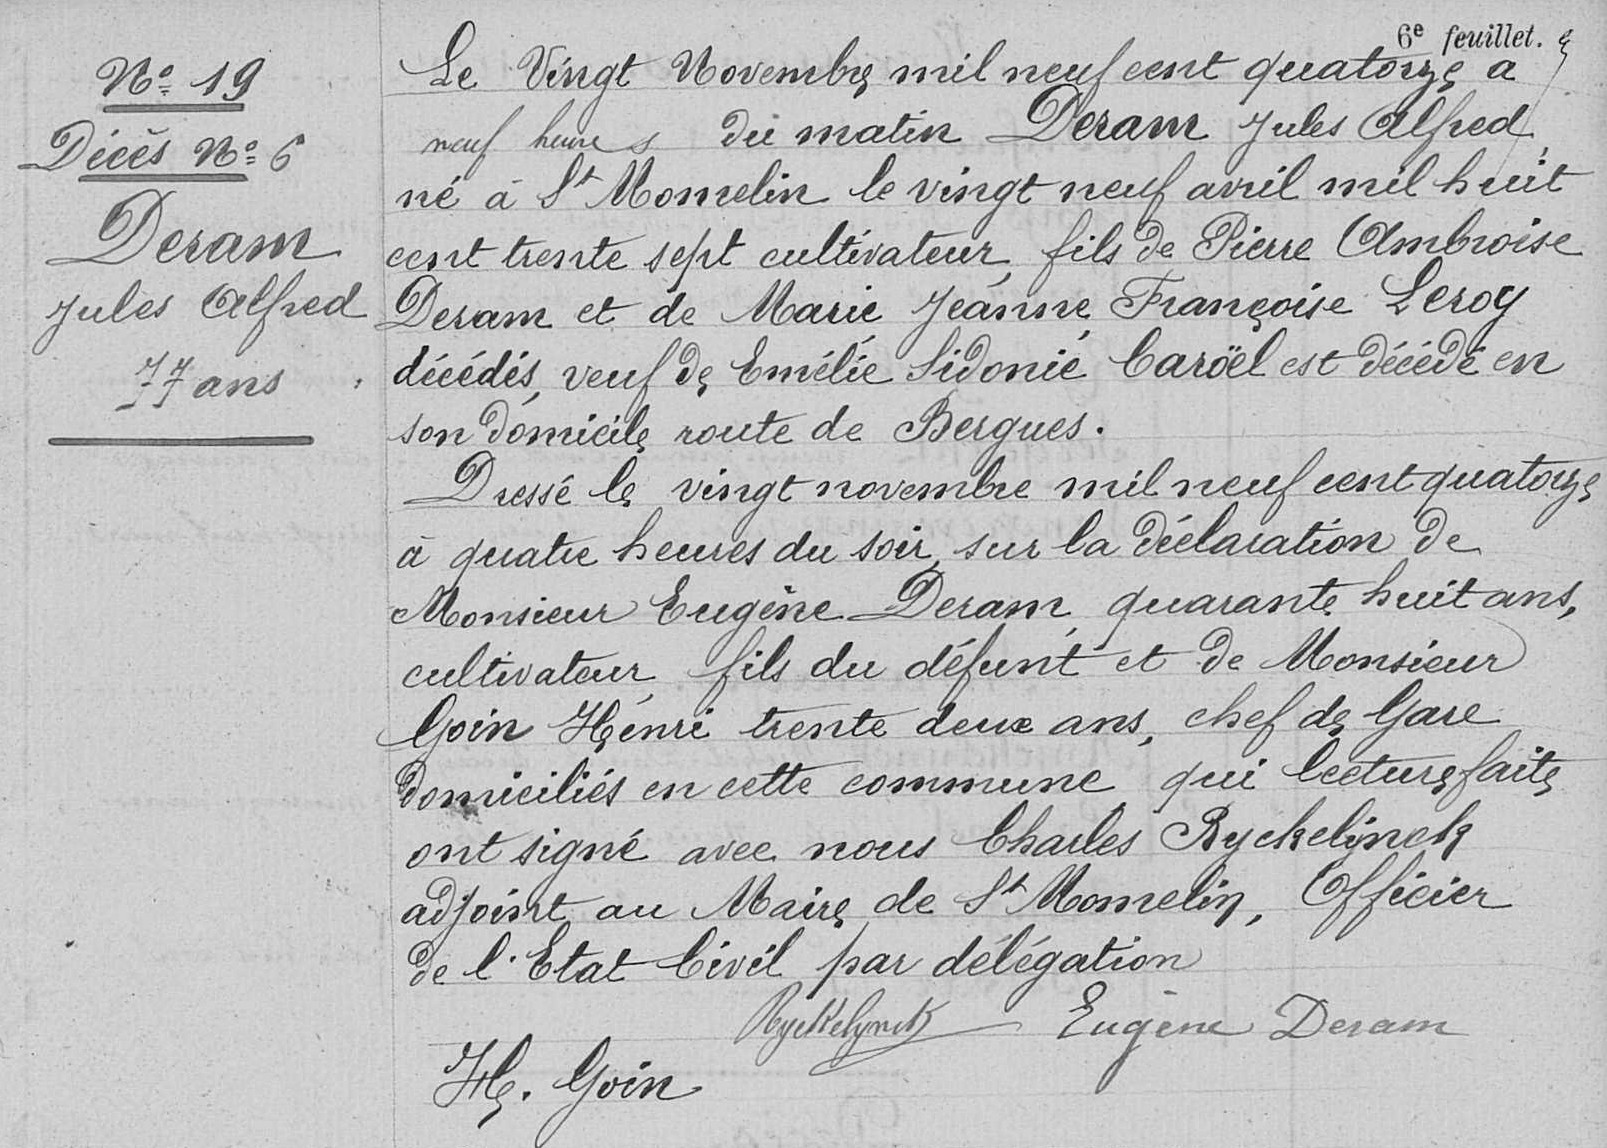 6e feuillet.
No 19
Décès No 6
Deram
Jules Alfred
77 ans
Le Vingt Novembre mil neuf cent quatorze a
neuf heures du matin Deram Jules Alfred,
né à St Momelin le vingt neuf avril mil huit
cent trente sept cultivateur, fils de Pierre Ambroise
Deram et de Marie Jeanne Françoise Leroy
décédés, veuf de Emélie Sidonie Caroël est décédé en
son domicile route de Bergues.
Dressé le vingt novembre mil neuf cent quatorze
à quatre heures du soir, sur la déclaration de
Monsieur Eugène Deram, quarante huit ans,
cultivateur, fils du défunt et de Monsieur
Goin Henri trente deux ans, chef de Gare
domiciliés en cette commune, qui lecture faite
ont signé avec nous Charles Ryckelynck
adjoint au Maire de St Momelin, Officier
de l'Etat Civil par délégation
Ryckelynck Eugène Deram
H. Goin